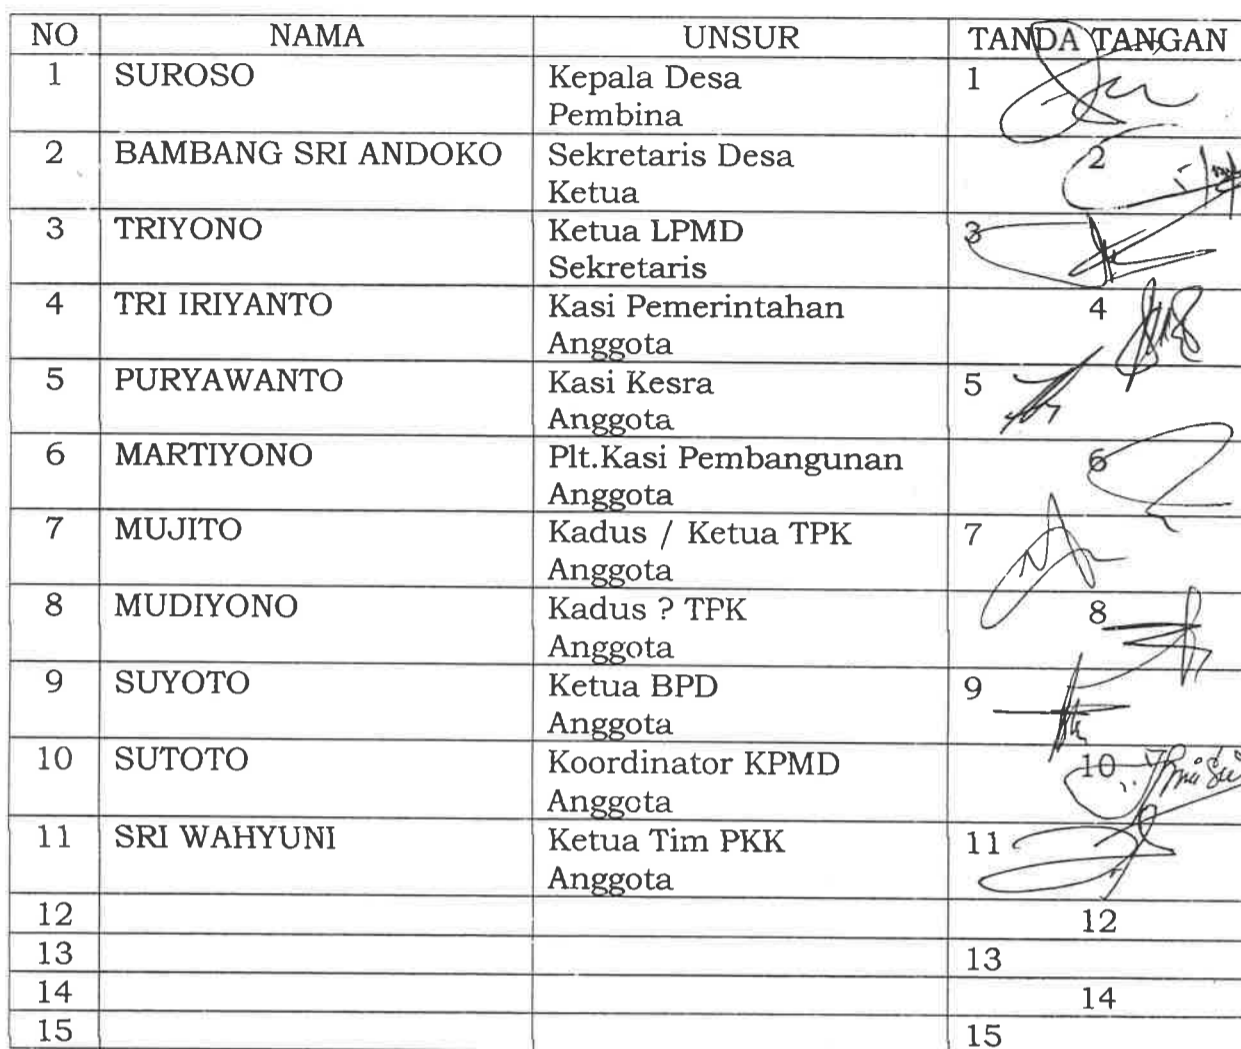 NO NAMA UNSUR TANDA TANGAN
1 SUROSO Kepala Desa 1
Pembina
2 BAMBANG SRI ANDOKO Sekretaris Desa 2
Ketua
3 TRIYONO Ketua LPMD 3
Sekretaris
4 TRI IRIYANTO Kasi Pemerintahan 4
Anggota
5 PURYAWANTO Kasi Kesra 5
Anggota
6 MARTIYONO Plt.Kasi Pembangunan 6
Anggota
7 MUJITO Kadus / Ketua TPK 7
Anggota
8 MUDIYONO Kadus ? TPK 8
Anggota
9 SUYOTO Ketua BPD 9
Anggota
10 SUTOTO Koordinator KPMD 10
Anggota
11 SRI WAHYUNI Ketua Tim PKK 11
Anggota
12 12
13 13
14 14
15 15